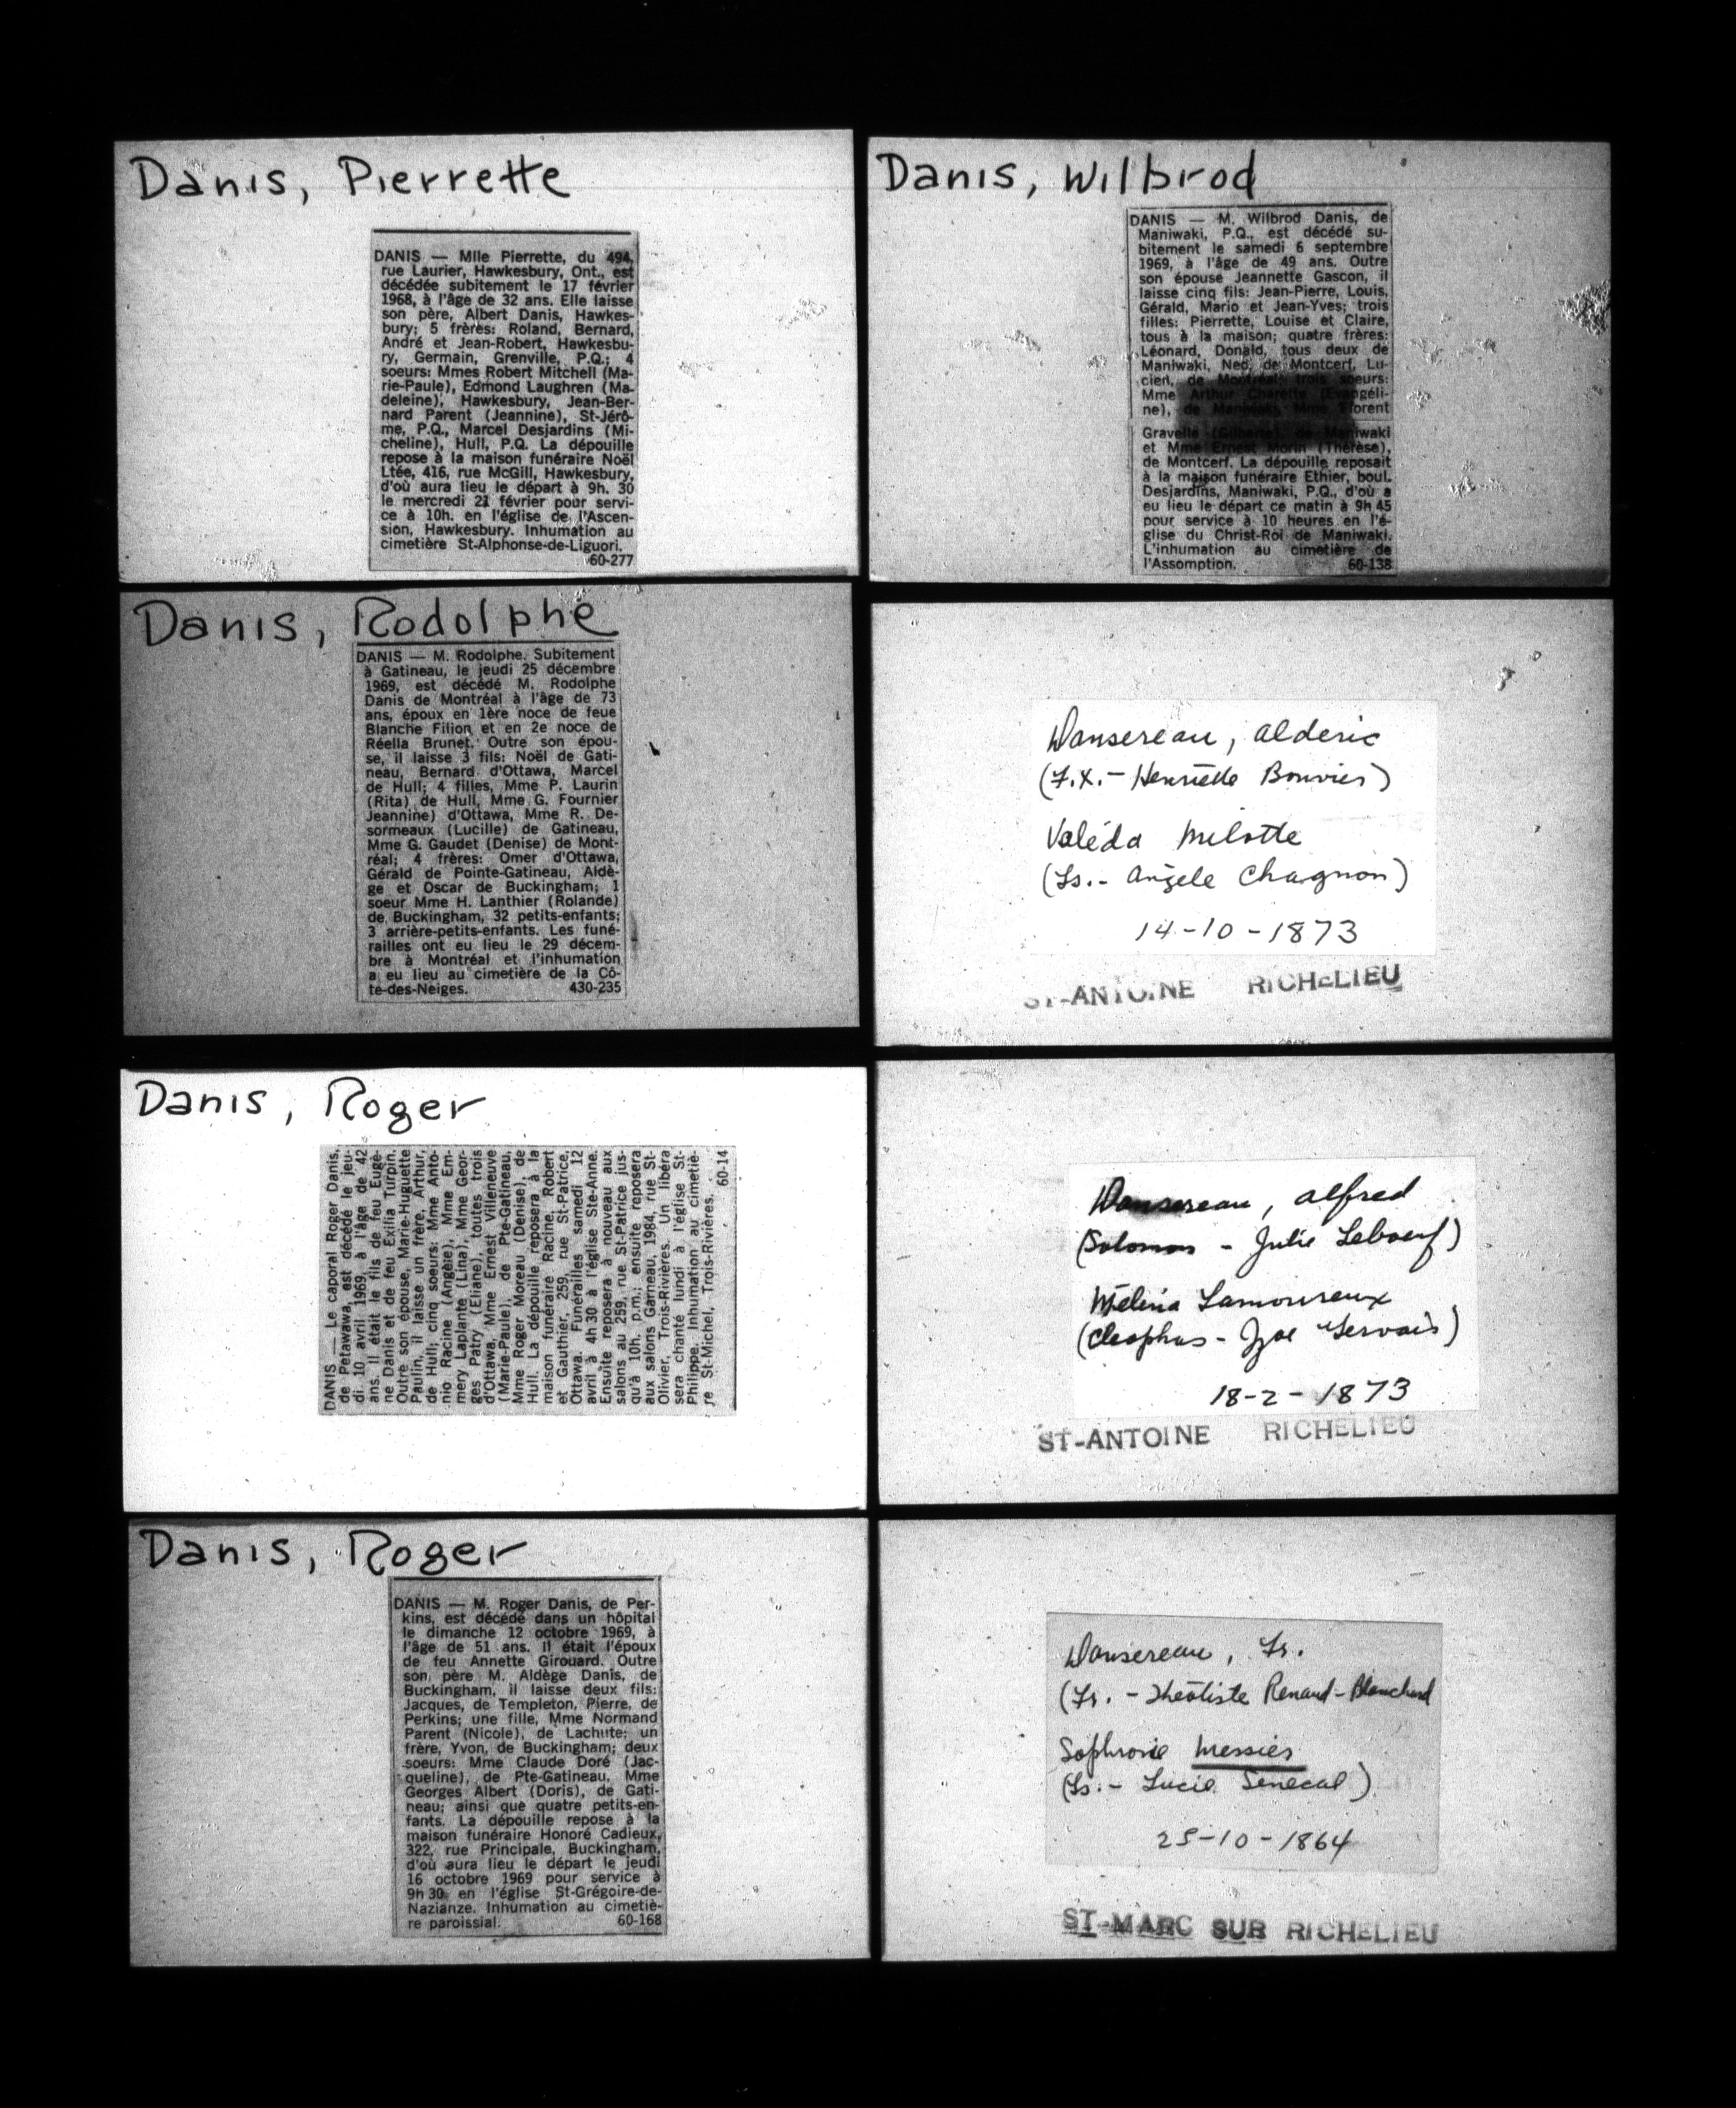 Danis, Pierrette
DANIS — Mlle Pierrette, du 494,
rue Laurier, Hawkesbury, Ont., est
décédée subitement le 17 février
1968, à l'âge de 32 ans. Elle laisse
son père, Albert Danis, Hawkes-
bury; 5 frères: Roland, Bernard,
André et Jean-Robert, Hawkesbu-
ry, Germain, Grenville, P.Q.; 4
soeurs: Mmes Robert Mitchell (Ma-
rie-Paule), Edmond Laughren (Ma-
deleine), Hawkesbury, Jean-Ber-
nard Parent (Jeannine), St-Jérô-
me, P.Q., Marcel Desjardins (Mi-
cheline), Hull, P.Q. La dépouille
repose à la maison funéraire Noël
Ltée, 416, rue McGill, Hawkesbury,
d'où aura lieu le départ à 9h. 30
le mercredi 21 février pour servi-
ce à 10h. en l'église de l'Ascen-
sion, Hawkesbury. Inhumation au
cimetière St-Alphonse-de-Liguori.
60-277
Danis, Rodolphe
DANIS — M. Rodolphe. Subitement
à Gatineau, le jeudi 25 décembre
1969, est décédé M. Rodolphe
Danis de Montréal à l'âge de 73
ans, époux en 1ère noce de feue
Blanche Filion et en 2e noce de
Réella Brunet. Outre son épou-
se, il laisse 3 fils: Noël de Gati-
neau, Bernard d'Ottawa, Marcel
de Hull; 4 filles, Mme P. Laurin
(Rita) de Hull, Mme G. Fournier
Jeannine) d'Ottawa, Mme R. De-
sormeaux (Lucille) de Gatineau,
Mme G. Gaudet (Denise) de Mont-
réal; 4 frères: Omer d'Ottawa,
Gérald de Pointe-Gatineau, Aldè-
ge et Oscar de Buckingham; 1
soeur Mme H. Lanthier (Rolande)
de Buckingham, 32 petits-enfants;
3 arrière-petits-enfants. Les funé-
railles ont eu lieu le 29 décem-
bre à Montréal et l'inhumation
a eu lieu au cimetière de la Cô-
te-des-Neiges. 430-235
Danis, Roger
DANIS — Le caporal Roger Danis,
de Petawawa, est décédé le jeu-
di 10 avril 1969, à l'âge de 42
ans. Il était le fils de feu Eugè-
ne Danis et de feu Exilia Turpin.
Outre son épouse, Marie-Huguette
Paulin, il laisse un frère, Arthur,
de Hull; cinq soeurs: Mme Anto-
nio Racine (Angèle), Mme Em-
mery Laplante (Lina), Mme Geor-
ges Patry (Eliane), toutes trois
d'Ottawa, Mme Ernest Villeneuve
(Marie-Paule), de Pte-Gatineau,
Mme Roger Moreau (Denise), de
Hull. La dépouille reposera à la
maison funéraire Racine, Robert
et Gauthier, 259, rue St-Patrice,
Ottawa. Funérailles samedi 12
avril à 4h 30 à l'église Ste-Anne.
Ensuite reposera à nouveau aux
salons au 259, rue St-Patrice jus-
qu'à 10h. p.m.; ensuite reposera
aux salons Garneau, 1984, rue St-
Olivier, Trois-Rivières. Un libéra
sera chanté lundi à l'église St-
Philippe. Inhumation au cimetiè-
re St-Michel, Trois-Rivières.
60-14
Danis, Roger
DANIS — M. Roger Danis, de Per-
kins, est décédé dans un hôpital
le dimanche 12 octobre 1969, à
l'âge de 51 ans. Il était l'époux
de feu Annette Girouard. Outre
son père M. Aldège Danis, de
Buckingham, il laisse deux fils:
Jacques, de Templeton, Pierre, de
Perkins; une fille, Mme Normand
Parent (Nicole), de Lachute; un
frère, Yvon, de Buckingham; deux
soeurs: Mme Claude Doré (Jac-
queline), de Pte-Gatineau, Mme
Georges Albert (Doris), de Gati-
neau; ainsi que quatre petits-en-
fants. La dépouille repose à la
maison funéraire Honoré Cadieux,
322, rue Principale, Buckingham,
d'où aura lieu le départ le jeudi
16 octobre 1969 pour service à
9h 30 en l'église St-Grégoire-de-
Nazianze. Inhumation au cimetiè-
re paroissial. 60-168
Danis, Wilbrod
DANIS — M. Wilbrod Danis, de
Maniwaki, P.Q., est décédé su-
bitement le samedi 6 septembre
1969, à l'âge de 49 ans. Outre
son épouse Jeannette Gascon, il
laisse cinq fils: Jean-Pierre, Louis,
Gérald, Mario et Jean-Yves; trois
filles: Pierrette, Louise et Claire,
tous à la maison; quatre frères:
Léonard, Donald, tous deux de
Maniwaki, Ned, de Montcerf, Lu-
cien, de Montréal; trois soeurs:
Mme Arthur Charette (Evangéli-
ne), de Maniwaki, Mme Florent
Gravelle (Gilberte), de Maniwaki
et Mme Ernest Morin (Thérèse),
de Montcerf. La dépouille reposait
à la maison funéraire Ethier, boul.
Desjardins, Maniwaki, P.Q., d'où a
eu lieu le départ ce matin à 9h 45
pour service à 10 heures en l'é-
glise du Christ-Roi de Maniwaki.
L'inhumation au cimetière de
l'Assomption. 60-138
Dansereau, Alderic
(F.X. - Henriette Bouvier)
Valéda Milotte
(Ls. - Angèle Chagnon)
14-10-1873
ST-ANTOINE RICHELIEU
Dansereau, Alfred
(Solomon - Julie Leboeuf)
Mélina Lamoureux
(Cleophas - Zoe Gervais)
18-2-1873
ST-ANTOINE RICHELIEU
Dansereau, Fr.
(Fr. - Théotiste Renaud-Blanchard
Sophronie Messier
(Ls. - Lucie Senecal)
25-10-1864
ST-MARC SUR RICHELIEU